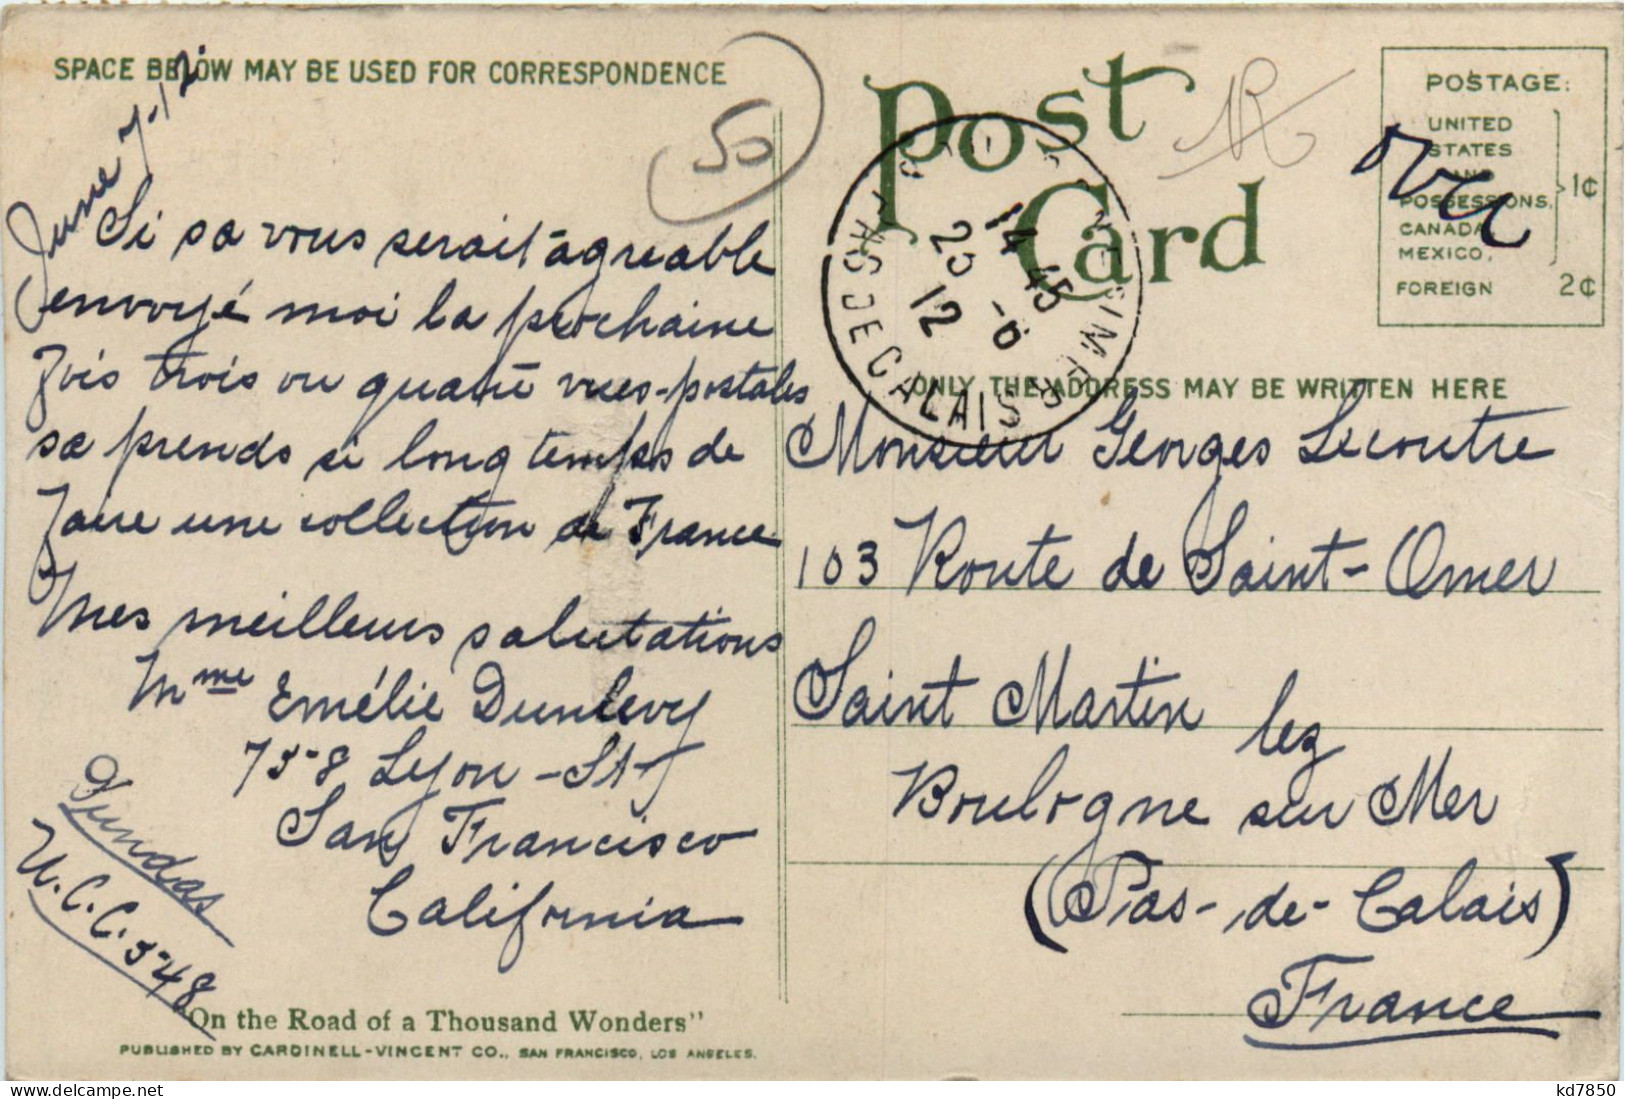 SPACE BELOW MAY BE USED FOR CORRESPONDENCE
June 7-12
50
Si sa vous serait agreable
envoyé moi la prochaine
fois trois ou quatre vues-postales
sa prends si long temps de
faire une collection de France
Mes meilleurs salutations
Mme Emélie Dunlevy
758 Lyon-St-
San Francisco
California
Dundas
U.C.C. 548
"On the Road of a Thousand Wonders"
PUBLISHED BY CARDINELL-VINCENT CO., SAN FRANCISCO, LOS ANGELES.
Post
Card
14 45
25 -6
12
PAS DE CALAIS
POSTAGE:
UNITED
STATES
AND
POSSESSIONS,
CANADA,
MEXICO,
1¢
FOREIGN 2¢
ONLY THE ADDRESS MAY BE WRITTEN HERE
Monsieur Georges Lecoutre
103 Route de Saint-Omer
Saint Martin lez
Boulogne sur Mer
(Pas-de-Calais)
France
kd7850